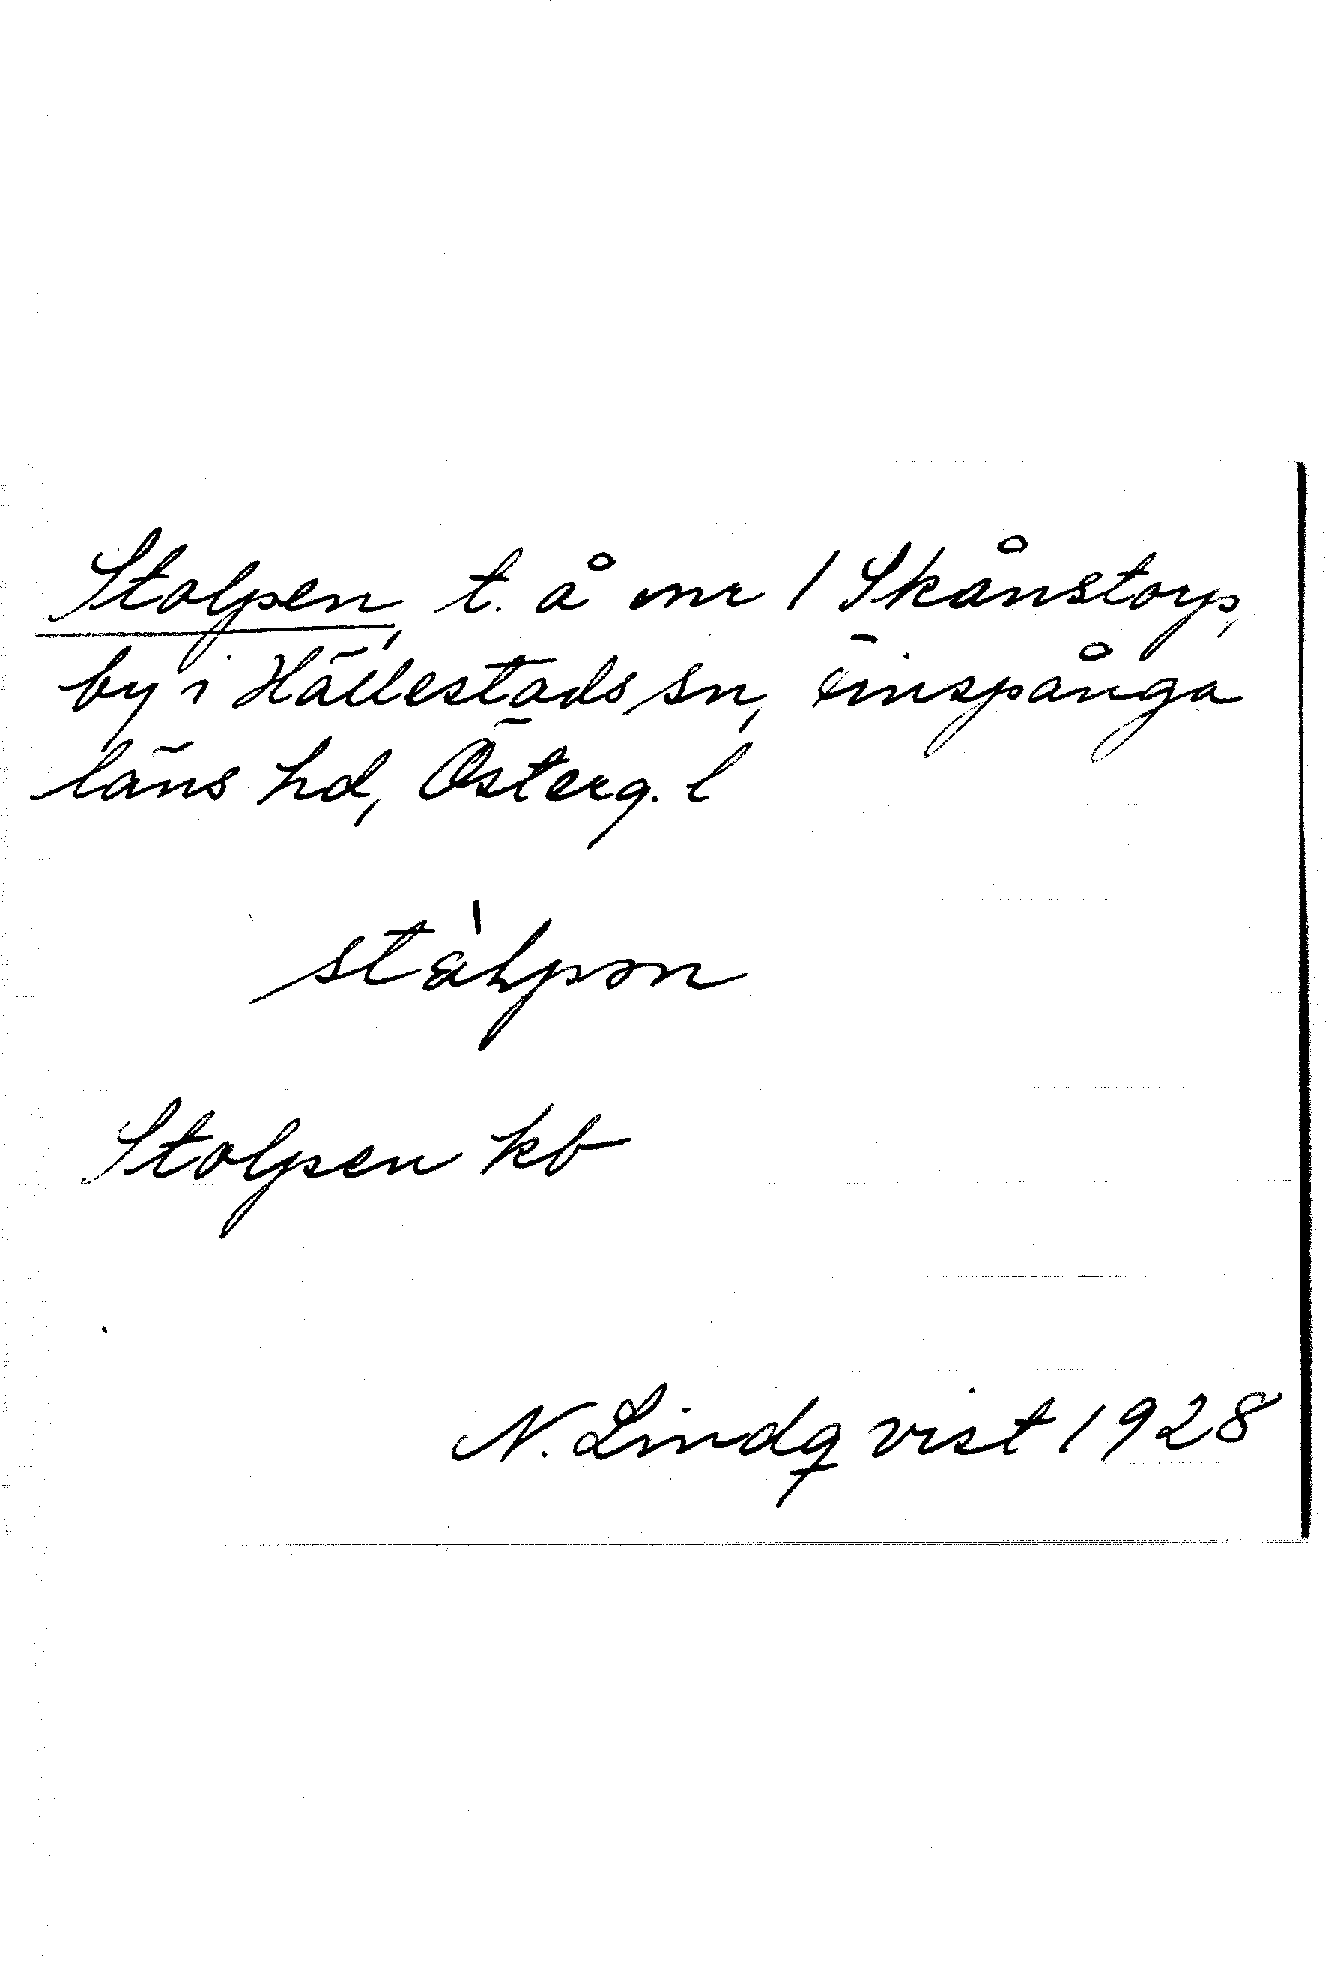 Stolpen, t. å nr 1 Skånstorp,
by i Hällestads sn, Finspånga
läns hd, Österg. l
stàlpən
Stolpen kb
N. Lindqvist 1928